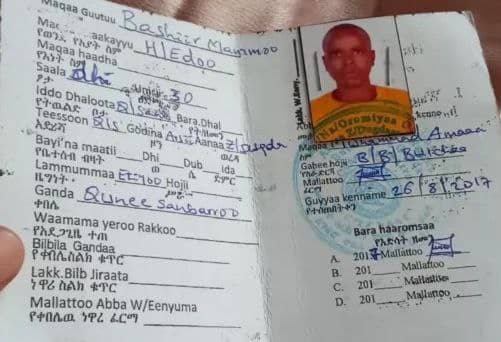 Maqaa Guutuu Bashiir
የወንድ የአያት ስም
aakayyu H/Edoo
Maqaa haadha
የእናት ስም
Saala Dhi Umrii 30
ፆታ
Iddo Dhaloota Bara Dhal
የትውልድ ቦታ
Teessoon Q/S Godina Arsii Aanaa Z/Dugda
አድራሻ ዞን ወረዳ
Bayi'na maatii Dhi Dub ida
የቤተሰብ ብዛት ወ ሴ ድምር
Lammummaa Hojii
ዜግነት ሥራ
Ganda Qunee
ቀበሌ
Waamama yeroo Rakkoo
የአደጋ ጊዜ ተጠ
Bilbila Gandaa
የቀበሌ ስልክ ቁጥር
Lakk.Bilb Jiraata
ነዋሪ ስልክ ቁጥር
Mallattoo Abba W/Eenyuma
የቀበሌው ነዋሪ ፊርማ
Lakk. W.Eeny.
Gahee hojii B/B/Bulchaa
Mallattoo
Guyyaa kenname 26/8/2017
የተሰጠበት ቀን
Bara haaromsaa
የእድሳት ዘመን
A. 2017 Mallattoo
B. 201 Mallattoo
C. 201 Mallattoo
D. 201 Mallattoo